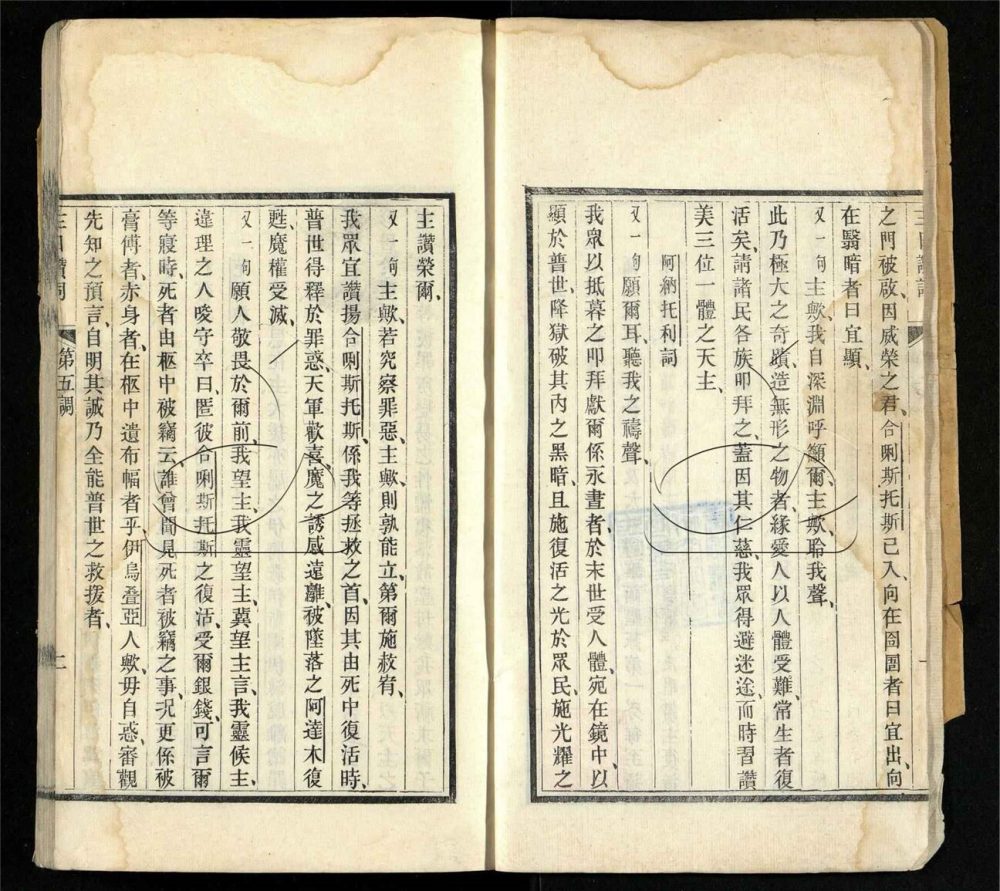 主日讚詞
之門被啟因威榮之君合唎斯托斯已入向在囹圄者曰宜出向
在翳暗者曰宜顯
又一句主歟我自深淵呼籲爾主歟聆我聲
此乃極大之奇蹟造無形之物者緣愛人以人體受難常生者復
活矣請諸民各族叩拜之蓋因其仁慈我眾得避迷途而時習讚
美三位一體之天主
阿納托利詞
又一句願爾耳聽我之禱聲
我衆以抵暮之叩拜獻爾係永晝者於末世受人體宛在鏡中以
顯於普世降獄破其內之黑暗且施復活之光於眾民施光耀之
主讚榮爾
又一句主歟若究察罪惡主歟則孰能立第爾施赦宥
我眾宜讚揚合唎斯托斯係我等拯救之首因其由死中復活時
普世得釋於罪惑天軍歡喜魔之誘感遠離被墜落之阿達木復
甦魔權受滅
又一句願人敬畏於爾前我望主我靈望主冀望主言我靈候主
違理之人唆守卒曰匿彼合唎斯托斯之復活受爾銀錢可言爾
等寢時死者由柩中被竊云誰曾聞見死者被竊之事況更係被
膏傅者赤身者在柩中遺布幅者乎伊烏叠亞人歟毋自惑審觀
先知之預言自明其誠乃全能普世之救援者
主日讚詞 第五調